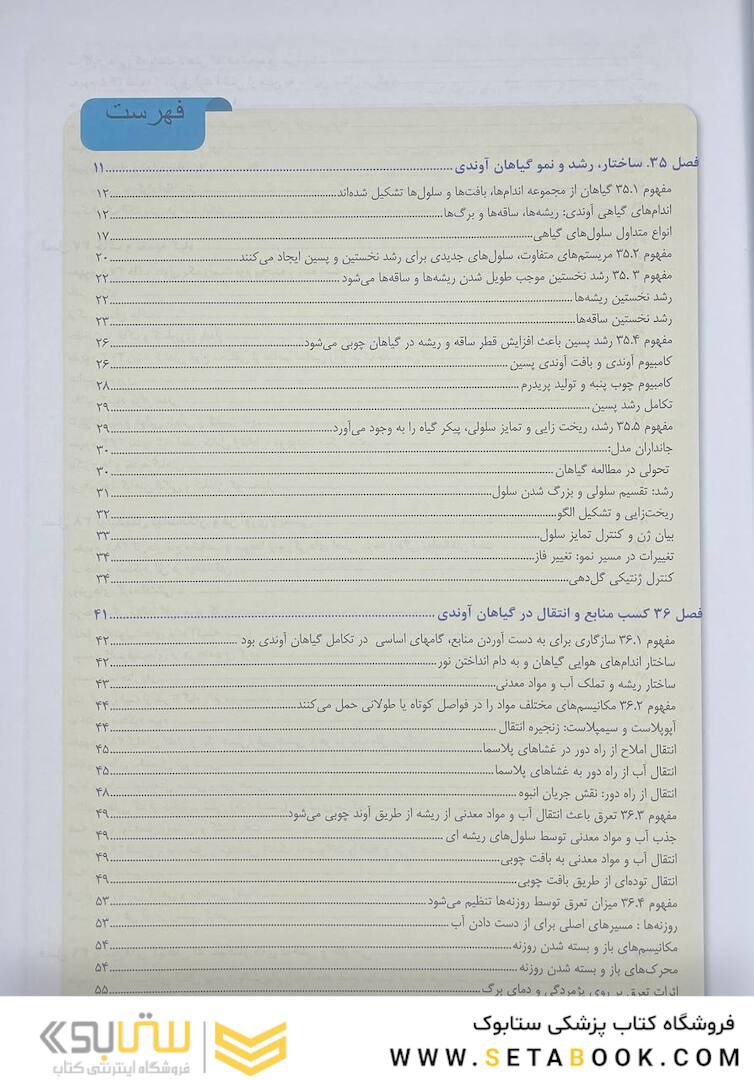 فهرست
فصل ۳۵. ساختار، رشد و نمو گیاهان آوندی........۱۱
مفهوم ۳۵.۱ گیاهان از مجموعه اندام‌ها، بافت‌ها و سلول‌ها تشکیل شده‌اند........۱۲
اندام‌های گیاهی آوندی: ریشه‌ها، ساقه‌ها و برگ‌ها........۱۲
انواع متداول سلول‌های گیاهی........۱۷
مفهوم ۳۵.۲ مریستم‌های متفاوت، سلول‌های جدیدی برای رشد نخستین و پسین ایجاد می‌کنند........۲۰
مفهوم ۳ .۳۵ رشد نخستین موجب طویل شدن ریشه‌ها و ساقه‌ها می‌شود........۲۲
رشد نخستین ریشه‌ها........۲۲
رشد نخستین ساقه‌ها........۲۳
مفهوم ۳۵.۴ رشد پسین باعث افزایش قطر ساقه و ریشه در گیاهان چوبی می‌شود........۲۶
کامبیوم آوندی و بافت آوندی پسین........۲۶
کامبیوم چوب پنبه و تولید پریدرم........۲۸
تکامل رشد پسین........۲۹
مفهوم ۳۵.۵ رشد، ریخت زایی و تمایز سلولی، پیکر گیاه را به وجود می‌آورد........۲۹
جانداران مدل:........۳۰
تحولی در مطالعه گیاهان........۳۰
رشد: تقسیم سلولی و بزرگ شدن سلول........۳۱
ریخت‌زایی و تشکیل الگو........۳۲
بیان ژن و کنترل تمایز سلول........۳۳
تغییرات در مسیر نمو: تغییر فاز........۳۴
کنترل ژنتیکی گل‌دهی........۳۴
فصل ۳۶ کسب منابع و انتقال در گیاهان آوندی........۴۱
مفهوم ۳۶.۱ سازگاری برای به دست آوردن منابع، گامهای اساسی در تکامل گیاهان آوندی بود........۴۲
ساختار اندام‌های هوایی گیاهان و به دام انداختن نور........۴۲
ساختار ریشه و تملک آب و مواد معدنی........۴۳
مفهوم ۳۶.۲ مکانیسم‌های مختلف مواد را در فواصل کوتاه یا طولانی حمل می‌کنند........۴۴
آپوپلاست و سیمپلاست: زنجیره انتقال........۴۴
انتقال املاح از راه دور در غشاهای پلاسما........۴۵
انتقال آب از راه دور به غشاهای پلاسما........۴۵
انتقال از راه دور: نقش جریان انبوه........۴۸
مفهوم ۳۶.۳ تعرق باعث انتقال آب و مواد معدنی از ریشه از طریق آوند چوبی می‌شود........۴۹
جذب آب و مواد معدنی توسط سلول‌های ریشه ای........۴۹
انتقال آب و مواد معدنی به بافت چوبی........۴۹
انتقال توده‌ای از طریق بافت چوبی........۴۹
مفهوم ۳۶.۴ میزان تعرق توسط روزنه‌ها تنظیم می‌شود........۵۳
روزنه‌ها : مسیرهای اصلی برای از دست دادن آب........۵۳
مکانیسم‌های باز و بسته شدن روزنه........۵۴
محرک‌های باز و بسته شدن روزنه........۵۴
اثرات تعرق بر روی پژمردگی و دمای برگ........۵۵
فروشگاه کتاب پزشکی ستابوک
WWW.SETABOOK.COM
ستابوک
فروشگاه اینترنتی کتاب